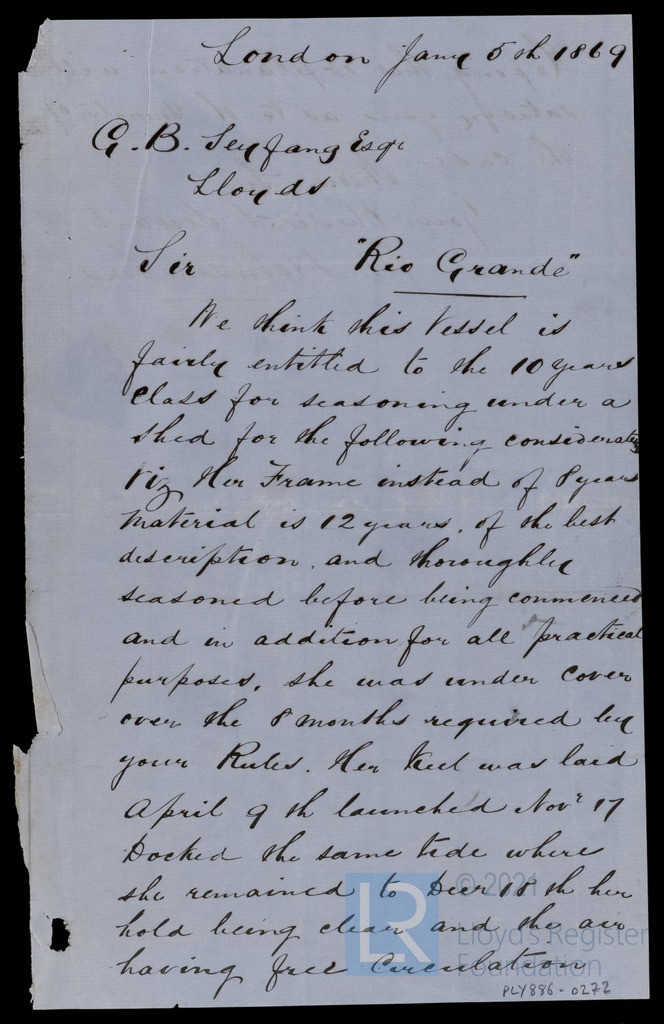 London Jany 5th 1869
G. B. Seyfang Esqr
Lloyds
Sir "Rio Grande"
We think this Vessel is
fairly entitled to the 10 years
Class for seasoning under a
shed for the following considerates
Viz Her Frame instead of 8 years
Material is 12 years, of the best
description, and thoroughly
seasoned before being commenced
and in addition for all practical
purposes, she was under cover
over the 8 months required by
your Rules. Her Keel was laid
April 9th launched Novr 17
Docked the same tide where
she remained to Decr 18th her
hold being clear and the air
having free Circulation
LR
© 2021
Lloyd's Register
Foundation
PLY886-0272